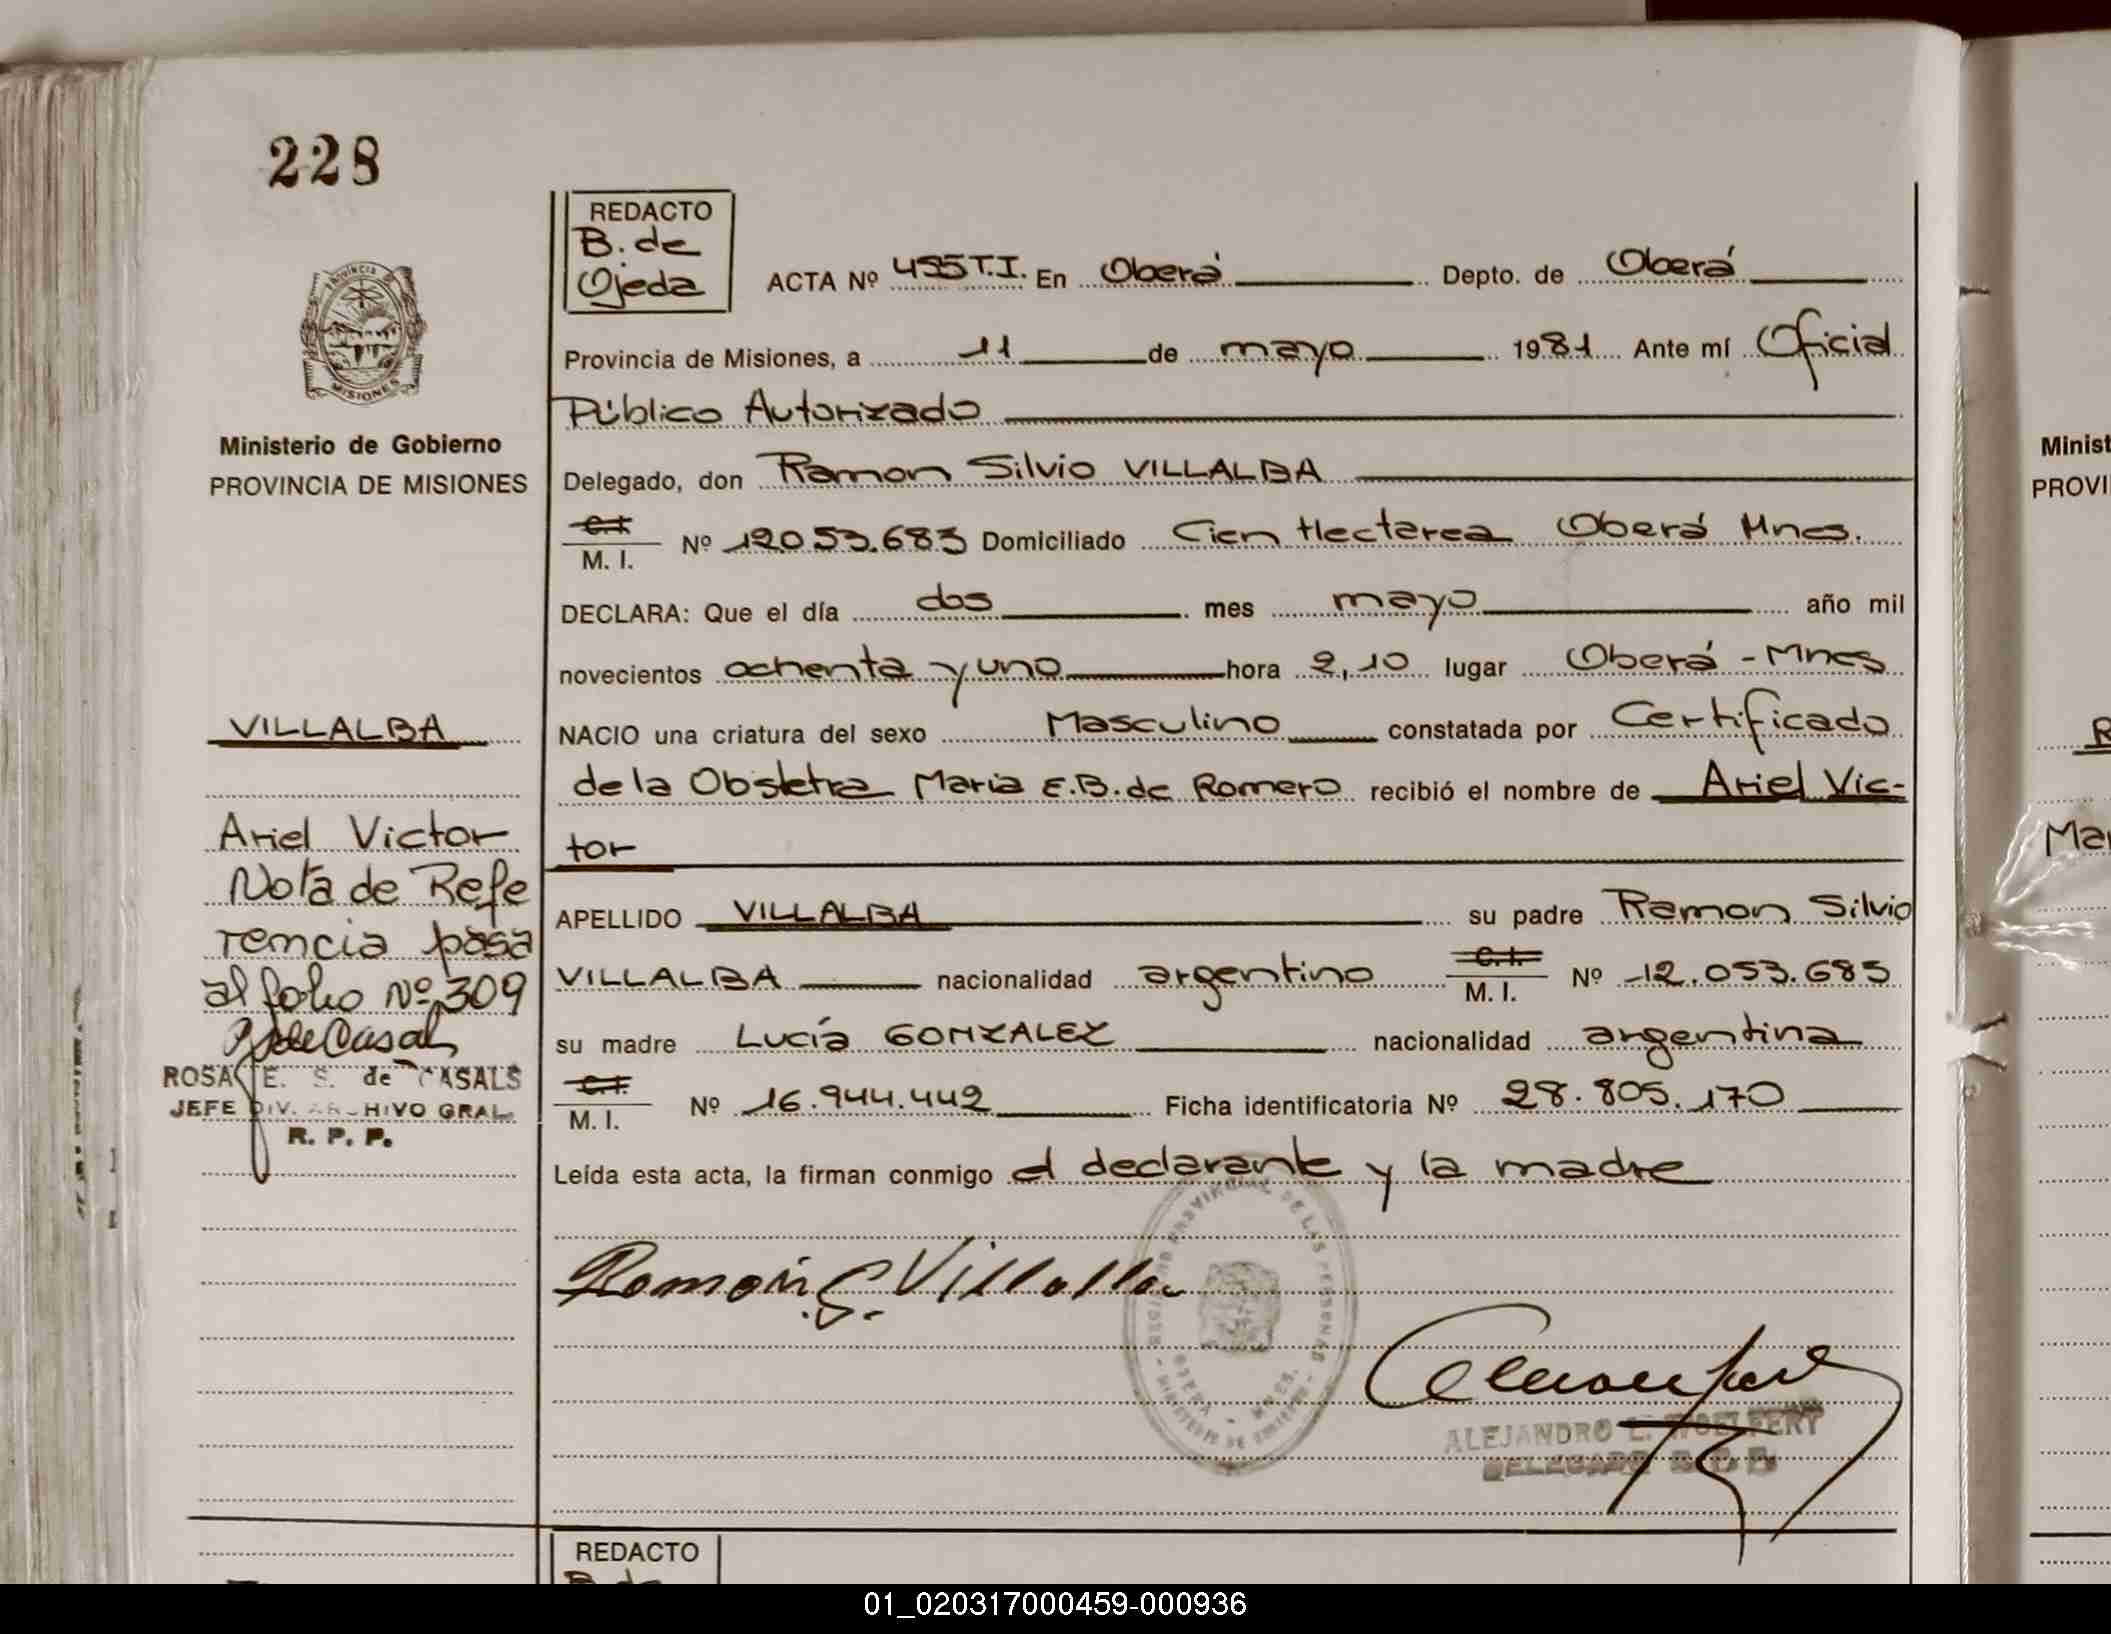 228
REDACTO
B. de
Ojeda
ACTA Nº 495 T.I. En Oberá Depto. de Oberá
Provincia de Misiones, a 11 de mayo 1981 Ante mí Oficial
Público Autorizado
Delegado, don Ramon Silvio VILLALBA
C.I.
M. I. Nº 12053.683 Domiciliado Cien Hectarea Oberá Mnes.
DECLARA: Que el día dos mes mayo año mil
novecientos ochenta y uno hora 2,10 lugar Oberá - Mnes
NACIO una criatura del sexo Masculino constatada por Certificado
de la Obstetra Maria E.B. de Romero recibió el nombre de Ariel Vic-
tor
APELLIDO VILLALBA su padre Ramon Silvio
VILLALBA nacionalidad argentino C.I.
M. I. Nº 12.053.685
su madre Lucía GONZALEZ nacionalidad argentina
C.I.
M. I. Nº 16.944.442 Ficha identificatoria Nº 28.805.170
Leída esta acta, la firman conmigo el declarante y la madre
Ramón S. Villalba
ALEJANDRO L. WOELFERT
DELEGADO R. P. P.
PROVINCIA DE
MISIONES
Ministerio de Gobierno
PROVINCIA DE MISIONES
VILLALBA
Ariel Victor
Nota de Refe
rencia pasa
al folio Nº 309
de Casals
ROSA E. S. de CASALS
JEFE DIV. ARCHIVO GRAL.
R. P. P.
REDACTO
B. de
Minist
PROVI
R
Mar
01_020317000459-000936